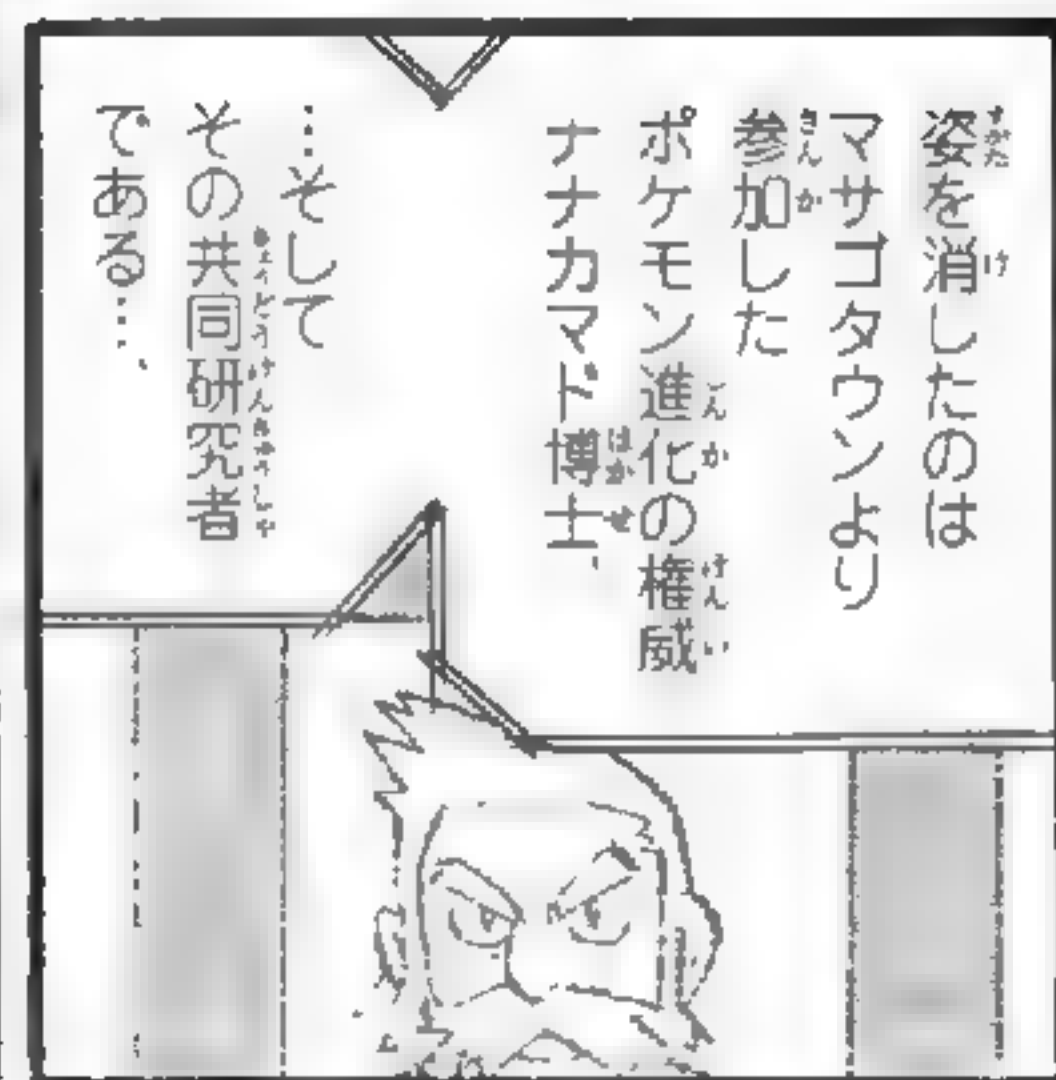 姿を消したのは
マサゴタウンより
参加した
ポケモン進化の権威
ナナカマド博士、
…そして
その共同研究者
である…、